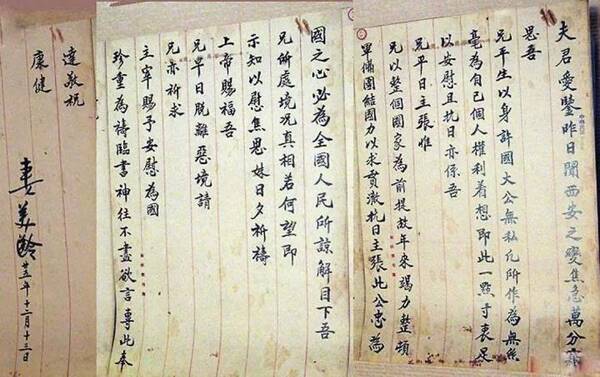 夫君愛鑒昨日聞西安之變焦急萬分竊
思吾
兄平生以身許國大公無私凡所作為無絲
毫為自己個人權利着想即此一點寸衷足
以安慰且抗日亦係吾
兄平日主張惟
兄以整個國家為前提故年來竭力整頓
軍備團結國力以求貫澈抗日主張此公忠為
國之心必為全國人民所諒解目下吾
兄所處境況真相若何望即
示知以慰焦思 妹日夕祈禱
上帝賜福吾
兄早日脫離惡境請
兄亦祈求
主宰賜予安慰為國
珍重為禱臨書神往不盡欲言專此奉
達敬祝
康健
妻美齡 廿五年十二月十三日